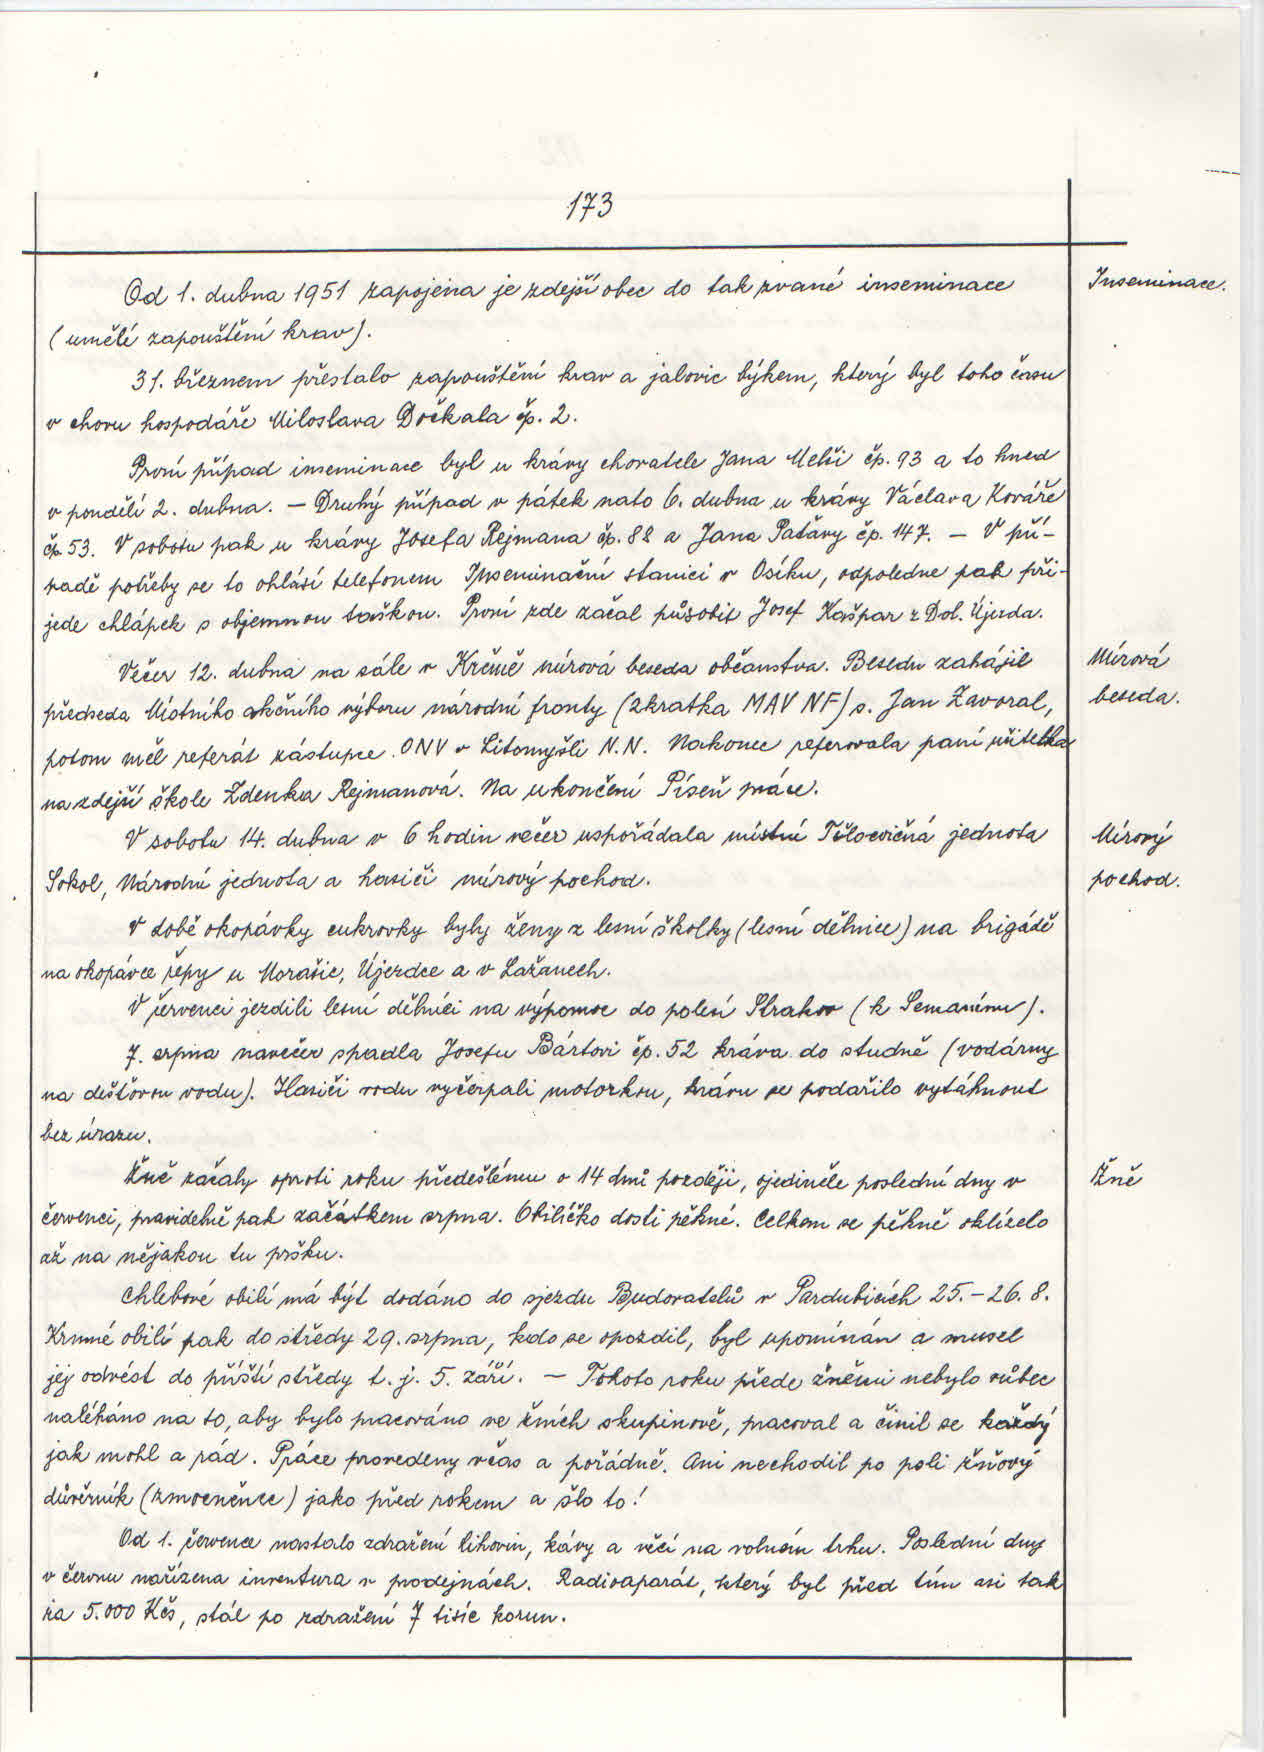 173
Od 1. dubna 1951 zapojena je zdejší obec do tak zvané inseminace
Inseminace.
(umělé zapouštění krav).
31. březnem přestalo zapouštění krav a jalovic býkem, který byl toho času
v chovu hospodáře Miloslava Dočkala čp. 2.
První případ inseminace byl u krávy chovatele Jana Melši čp. 93 a to hned
v pondělí 2. dubna. – Druhý případ v pátek nato 6. dubna u krávy Václava Kováře
čp. 53. V sobotu pak u krávy Josefa Rejmana čp. 88 a Jana Paťavy čp. 147. – V pří-
padě potřeby se to ohlásí telefonem Inseminační stanici v Osíku, odpoledne pak při-
jede chlápek s objemnou taškou. První zde začal působit Josef Kašpar z Dol. Újezda.
Večer 12. dubna na sále v Krčmě mírová beseda občanstva. Besedu zahájil
Mírová
předseda Místního akčního výboru národní fronty (zkratka MAV NF) s. Jan Zavoral,
beseda.
potom měl referát zástupce ONV v Litomyšli N.N. Nakonec referovala paní učitelka
na zdejší škole Zdenka Rejmanová. Na ukončení Píseň práce.
V sobotu 14. dubna v 6 hodin večer uspořádala místní Tělocvičná jednota
Mírový
Sokol, Národní jednota a hasiči mírový pochod.
pochod.
V době okopávky cukrovky byly ženy z lesní školky (lesní dělnice) na brigádě
na okopávce řepy u Morašic, Újezdce a v Lažanech.
V červenci jezdili lesní dělníci na výpomoc do polesí Strakov (k Semanínu).
7. srpna navečer spadla Josefu Bártovi čp. 52 kráva do studně (vodárny
na dešťovou vodu). Hasiči vodu vyčerpali motorkou, krávu se podařilo vytáhnout
bez úrazu.
Žně začaly oproti roku předešlému o 14 dní později, ojediněle poslední dny v
Žně
červenci, pravidelně pak začátkem srpna. Obilíčko dosti pěkné. Celkem se pěkně oklízelo
až na nějakou tu pršku.
Chlebové obilí má být dodáno do sjezdu Budovatelů v Pardubicích 25.–26. 8.
Krmné obilí pak do středy 29. srpna, kdo se opozdil, byl upomínán a musel
jej odvést do příští středy t. j. 5. září. – Tohoto roku přede žněmi nebylo vůbec
naléháno na to, aby bylo pracováno ve žních skupinově, pracoval a činil se každý
jak mohl a rád. Práce provedeny včas a pořádně. Ani nechodil po poli žňový
důvěrník (zmocněnec) jako před rokem a šlo to!
Od 1. července nastalo zdražení lihovin, kávy a věcí na volném trhu. Poslední dny
v červnu nařízena inventura v prodejnách. Radioaparát, který byl před tím asi tak
za 5.000 Kčs, stál po zdražení 7 tisíc korun.